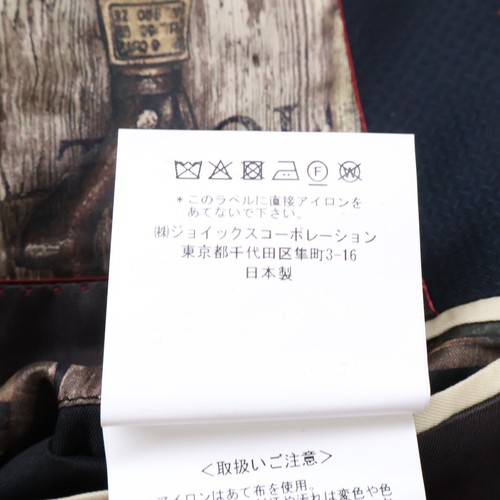 F W
*このラベルに直接アイロンを
あてないで下さい。
㈱ジョイックスコーポレーション
東京都千代田区隼町3-16
日本製
<取扱いご注意>
アイロンはあて布を使用。
汚れは変色や色